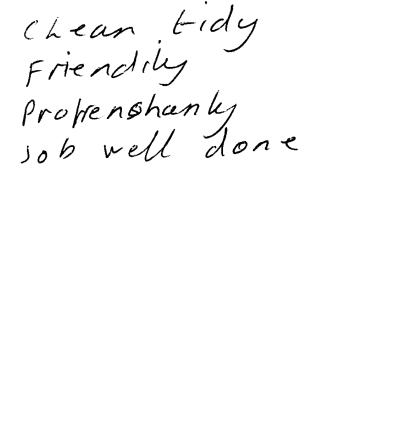 Clean tidy
Friendily
Profenshanly
Job well done